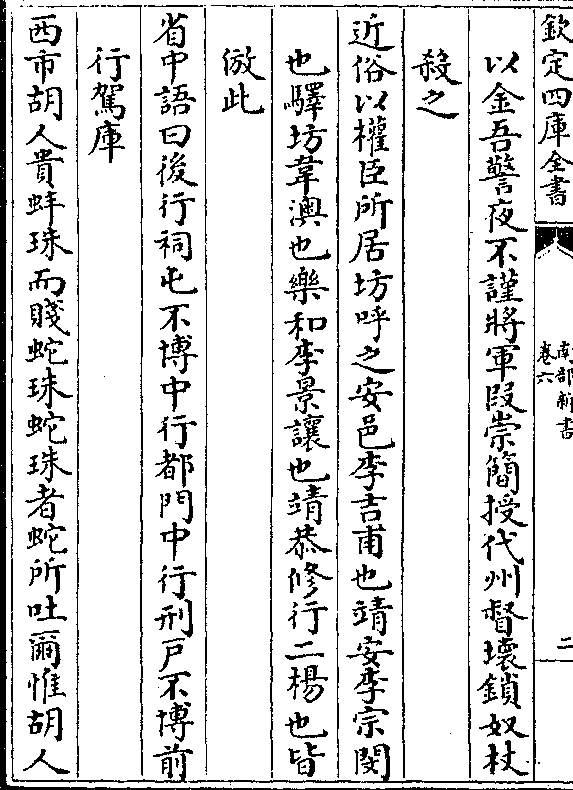 欽定四庫全書
南部新書
卷六
二
以金吾警夜不謹將軍段崇簡授代州督壞鎖奴杖
殺之
近俗以權臣所居坊呼之安邑李吉甫也靖安李宗閔
也驛坊韋澳也樂和李景讓也靖恭修行二楊也皆
倣此
省中語曰後行祠屯不博中行都門中行刑戸不博前
行駕庫
西市胡人貴蚌珠而賤蛇珠蛇珠者蛇所吐爾惟胡人